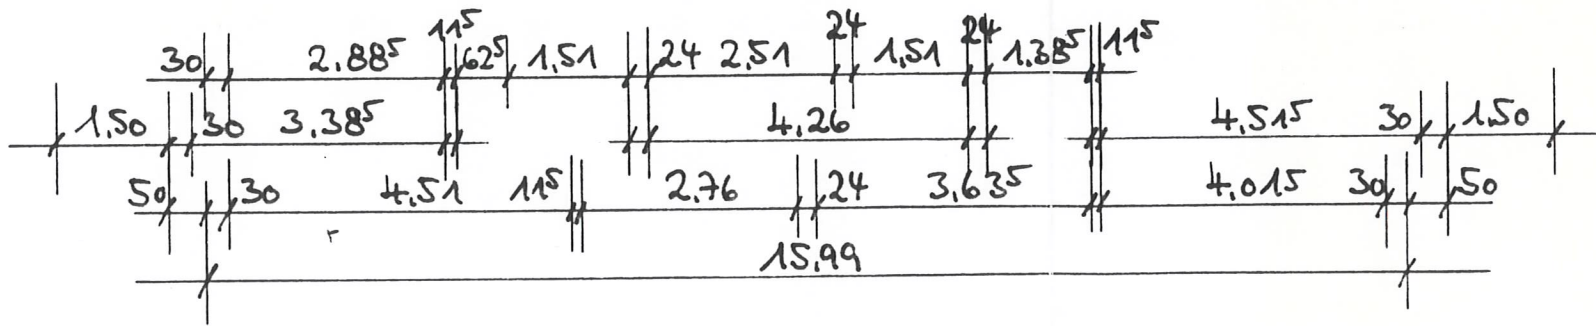 30 2.88⁵ 11⁵ 62⁵ 1,51 24 2,51 24 1,51 24 1.38⁵ 11⁵
1,50 30 3.38⁵ 4,26 4,51⁵ 30 1,50
50 30 4,51 11⁵ 2,76 24 3,63⁵ 4,015 30 50
15,99